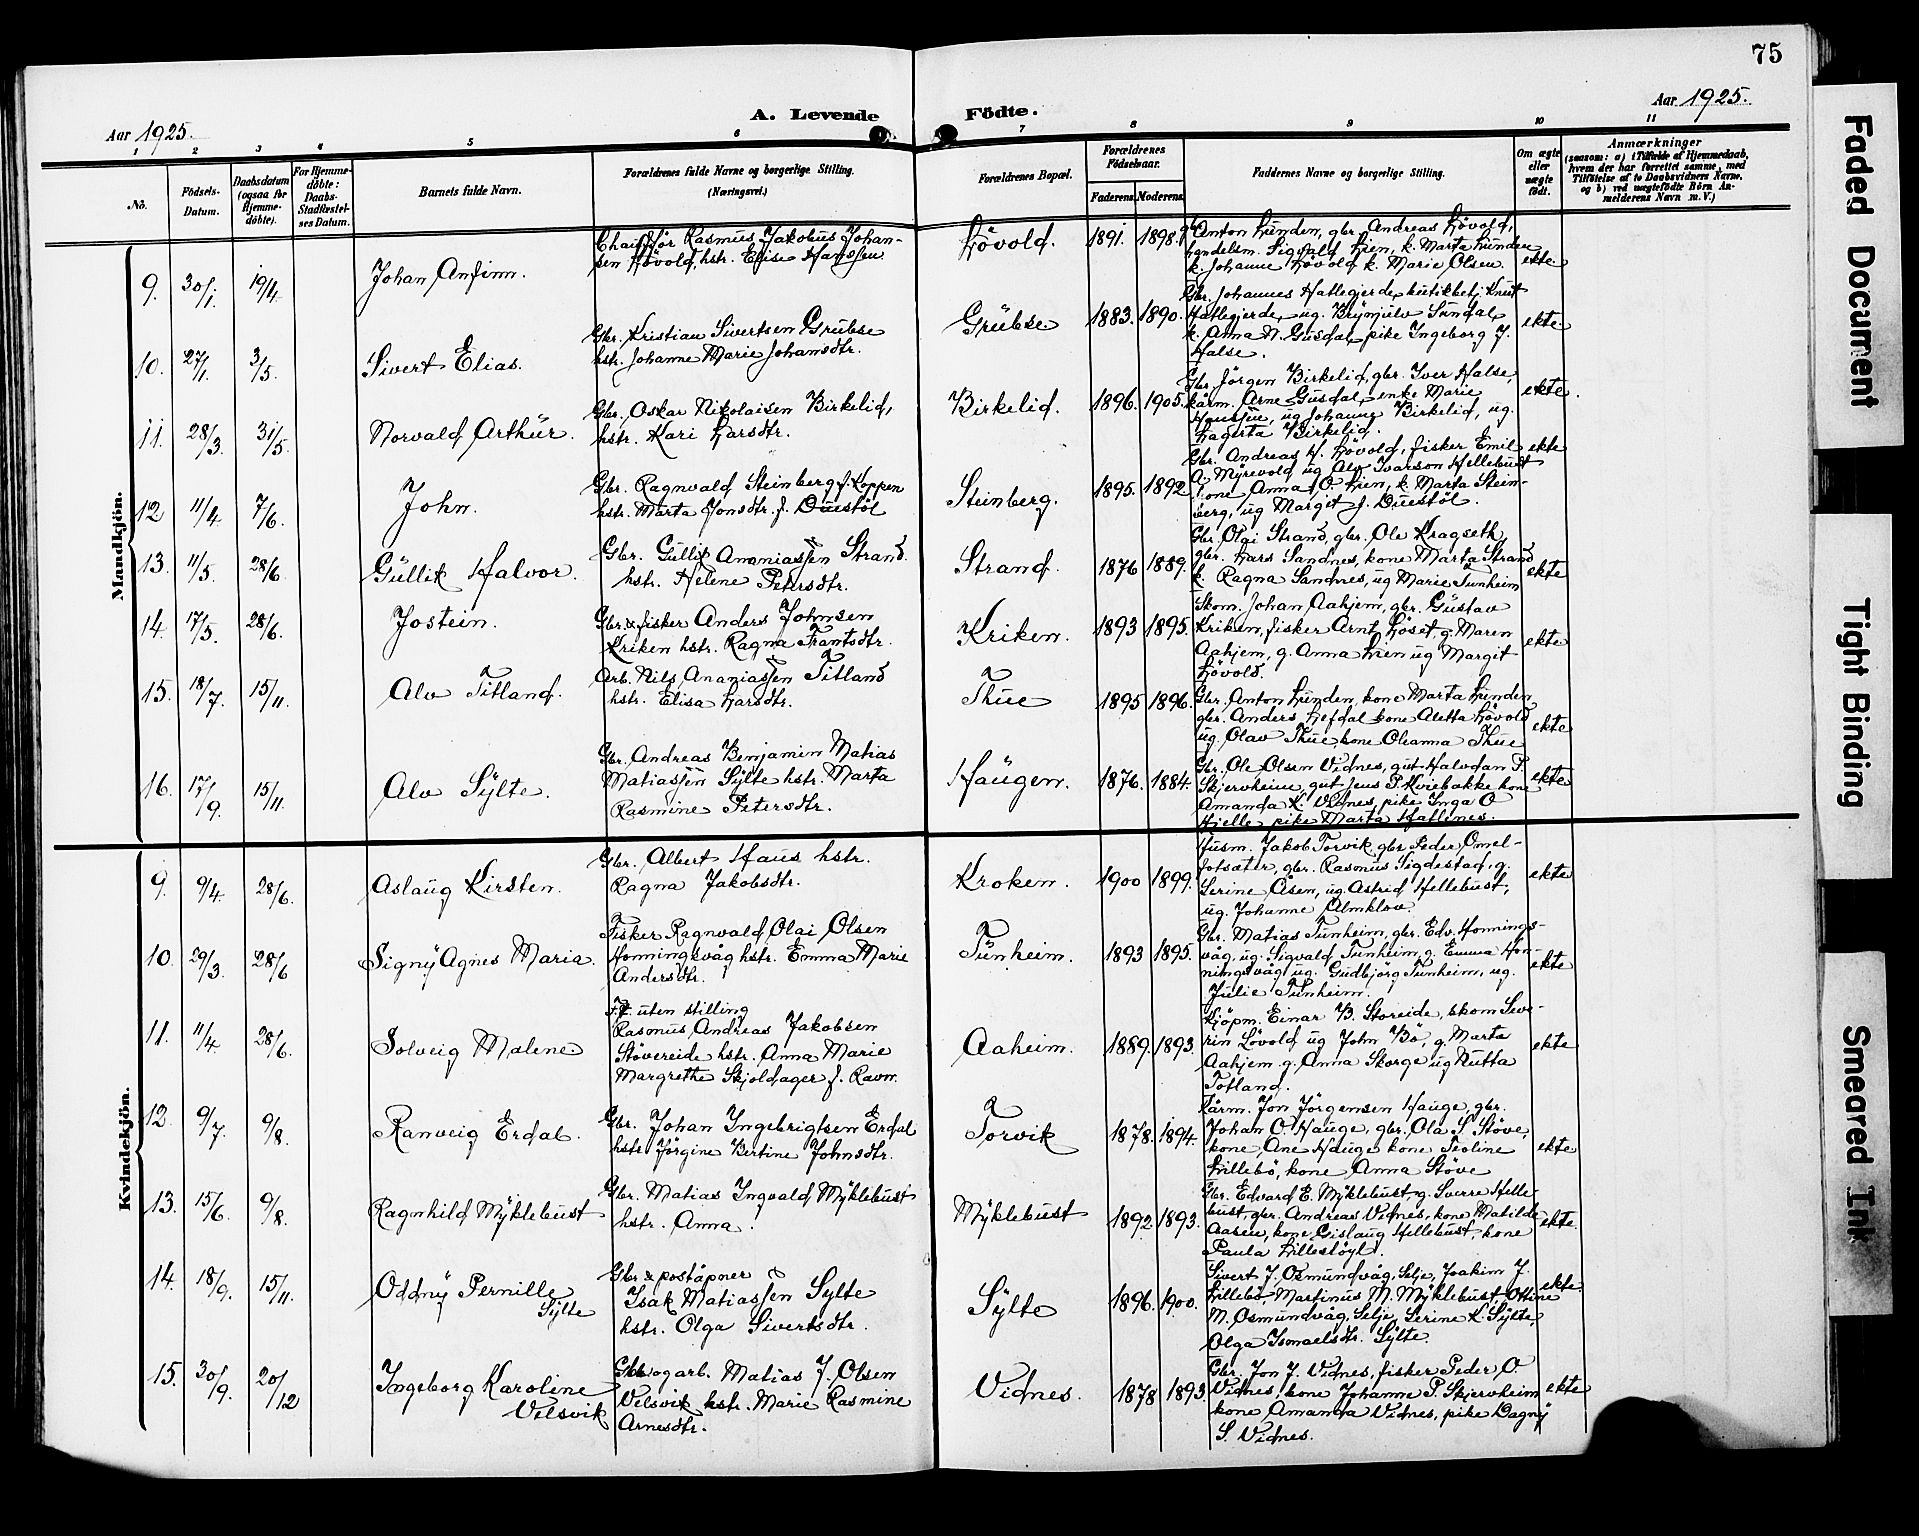 75
Aar 1925.
A. Levende Födte.
Aar 1925.
1 2 3 4 5 6 7 8 9 10 11
No.
Födsels-Datum.
Daabsdatum (ogsaa for Hjemme-döbte).
For Hjemme-döbte: Daabs-Stadfæstel-ses Datum.
Barnets fulde Navn.
Forældrenes fulde Navne og borgerlige Stilling.
(Næringsvei.)
Forældrenes Bopæl.
Forældrenes Födselsaar.
Faderens. Moderens.
Faddernes Navne og borgerlige Stilling.
Om ægte eller uægte født.
Anmærkninger
(saasom: a) i Tilfælde af Hjemmedaab, hvem der har forrettet samme, med Tilföielse af to Daabsvidners Navne, og b) ved uægtefödte Börn Anmelderens Navn m. V.)
Mandkjön.
9. 30/1. 19/4 Johan Anfinn.
Chauffør Rasmus Jakobus Johan-
sen Hövold, hstr. Elise Hanssen
Lövold. 1891. 1898.
Anton Lunden, gbr. Andreas Lövold,
handelsm. Sigvald Lien, k. Marta Lunden
k. Johanne Lövold k. Marie Olsen. ekte
10. 27/1. 3/5. Sivert Elias.
Gbr. Kristian Sivertsen Grubse
hstr. Johanne Marie Johansdtr.
Grubse 1883. 1890.
Gbr. Johannes Hatlegjerde, butikbetj. Knut
Hatlegjerde, ug. Brynjulv Sundal,
k. Anna N. Gusdal, pike Ingeborg J.
Halse. ekte
11. 28/3. 31/5 Norvald Arthur.
Gbr. Oskar Nikolaisen Birkelid,
hstr. Kari Larsdtr.
Birkelid. 1896. 1905.
Gbr. Jörgen Birkelid, gbr. Iver Halse,
kårm. Arne Gusdal, enke Marie
ug Johanne Birkelid, ug.
Lagerta Birkelid. ekte.
12 11/4 7/6. John.
Gbr. Ragnvald Steinberg f. Koppen
hstr. Marta Jonsdtr. f. Duestöl
Steinberg. 1895. 1892
Gbr. Andreas H. Lövold, fisker Emil
A. Myrevold ug Alv Ivarson Hellebust
kone Anna O. Lien, k. Marta Stein-
berg, ug Margit J. Duestöl. ekte
13. 11/5. 28/6 Gullik Halvor.
Gbr. Gullik Ananiassen Strand
hstr. Helene Petersdtr.
Strand. 1876 1889.
Gbr. Olai Strand, gbr. Ole Kragseth,
gbr. Lars Sandnes, kone Marta Strand
k. Ragna Sandnes, ug Marie Tunheim ekte
14. 17/5. 28/6. Jostein.
Gbr. & fisker Anders Johnsen
Kriken hstr. Ragna Frantsdtr.
Kriken. 1893 1895.
Skom. Johan Aahjem, gbr. Gustav
Kriken, fisker Arnt Höset, g. Maren
Aahjem, g. Anna Lien ug Margit
Lövold. ekte
15. 18/7. 15/11. Alv Titland.
Arb. Nils Ananiassen Titland
hstr. Elisa Larsdtr.
Thue 1895 1896.
Gbr. Anton Lunden, kone Marta Lunden,
gbr. Anders Lefdal kone Aletta Lövold
ug. Olav Thue, kone Oleanna Thue ekte
16. 17/9. 15/11. Alv Sylte.
Gbr. Andreas Benjamin Matias
Matiassen Sylte hstr. Marta
Rasmine Petersdtr.
Haugen. 1876. 1884.
Gbr. Ole Olsen Vidnes, gut Halvdan P.
Skjervheim, gut Jens P. Kviebakke kone
Amanda K. Vidnes, pike Inga O
Hjelle pike Marta Hatlenes. ekte
Kvindekjön.
9. 9/4. 28/6. Aslaug Kirsten.
Gbr. Albert Haus hstr.
Ragna Jakobsdtr.
Kroken. 1900 1899.
Husm. Jakob Torvik, gbr Peder Omel-
fotsæter, gbr. Rasmus Sigdestad, g.
Serine Åsen, ug. Astrid Hellebust,
ug. Johanne Almklov. ekte
10. 29/3. 28/6 Signy Agnes Maria.
Fisker Ragnvald Olai Olsen
Honningsvåg hstr. Emma Marie
Andersdtr.
Tunheim. 1893 1895.
Gbr. Matias Tunheim, gbr. Edv. Honnings-
våg, ug. Sigvald Tunheim, g. Emma Hon-
ningsvåg ug. Gudbjörg Tunheim, ug.
Julie Tunheim. ekte
11. 11/4 28/6. Solveig Malene
F.t. uten stilling
Rasmus Andreas Jakobsen
Stövereide hstr. Anna Marie
Margrethe Skjoldager f. Ravn.
Aaheim. 1889. 1893.
Kjöpm. Einar B. Storeide, skom Seve-
rin Lövold ug John Bö, g. Marta
Aahjem g. Anna Skorge ug Nutta
Totland. ekte
12. 9/7. 9/8. Ranveig Erdal.
Gbr. Johan Ingebrigtsen Erdal
hstr Jörgine Bertine Johnsdtr.
Torvik 1878. 1894.
Kårm. Jon Jörgensen Hauge, gbr.
Johan O. Hauge, gbr. Ola S. Stöve,
kone, Ane Hauge kone Teoline
Lillebö, kone Anna Stöve ekte
13. 15/6. 9/8. Ragnhild Myklebust
Gbr. Matias Ingvald Myklebust
hstr. Anna.
Myklebust 1892. 1893.
Gbr. Edvard E. Myklebust, g. Sverre Helle-
bust, gbr. Andreas Vidnes, kone Matilde
Aasen, kone Gislaug Hellebust, kone
Paula Lillestöyl. ekte.
14. 18/9. 15/11. Oddny Pernille
Sylte
Gbr & poståpner
Isak Matiassen Sylte
hstr. Olga Sivertsdtr.
Sylte 1896. 1900.
Sivert J. Osmundvåg, Selje, Joakim J.
Lillebö, Martinus M. Myklebust, Ottine
M. Osmundvåg, Selje, Serine K. Sylte,
Olga Ismaelsdtr. Sylte. ekte.
15. 30/9. 20/12 Ingeborg Karoline
Velsvik
Gbr og arb. Matias J. Olsen
Velsvik hstr. Marie Rasmine
Arnesdtr.
Vidnes. 1878 1893
Gbr. Jon J. Vidnes, fisker Peder O.
Vidnes, kone Johanne P. Skjervheim
kone Amanda Vidnes, pike Dagny
S. Vidnes. ekte
Faded Document
Tight Binding
Smeared Ink